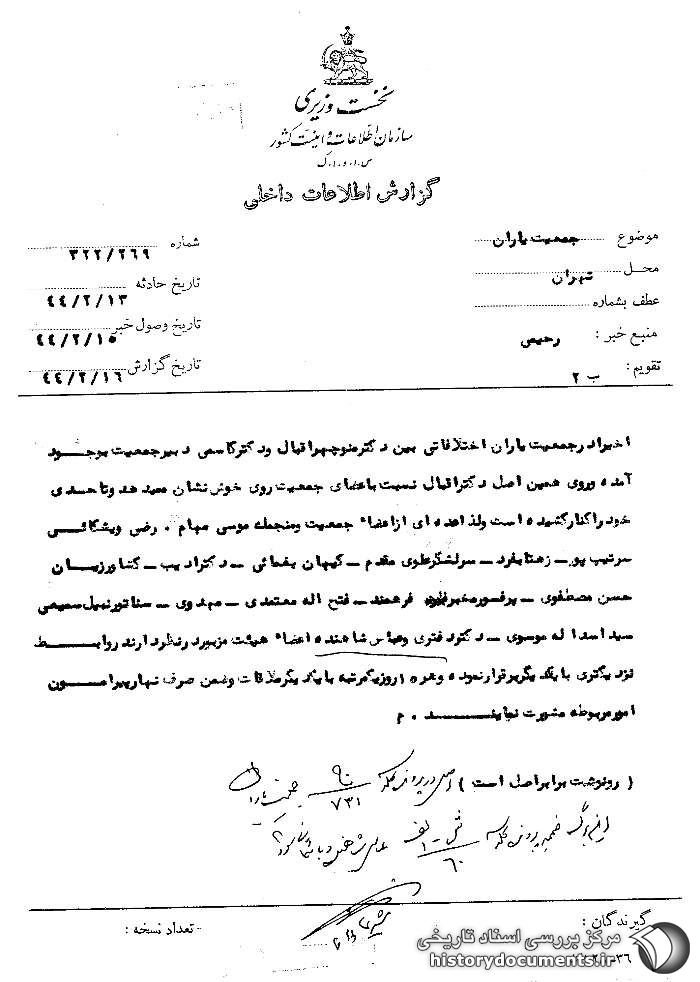 نخست وزیری
سازمان اطلاعات و امنیت کشور
س.ا.و.ا.ک
گزارش اطلاعات داخلی
موضوع جمعیت یاران
محل تهران
عطف بشماره
منبع خبر : رحیمی
تقویم : ب ۲
شماره ۳۲۲/۲۶۹
تاریخ حادثه ۴۴/۲/۱۳
تاریخ وصول خبر ۴۴/۲/۱۵
تاریخ گزارش ۴۴/۲/۱۶
اخیرا در جمعیت یاران اختلافاتی بین دکتر منوچهر اقبال و دکتر قاسمی دبیر جمعیت بوجود
آمده و روی همین اصل دکتر اقبال نسبت باعضای جمعیت روی خوش نشان نمیدهد و تا حدی
خود را کنار کشیده است ولذا عده ای از اعضاء جمعیت و منجمله موسی مهام . رضی ویشکائی
سرتیپ پور ـ زهتابفرد ـ سرلشکر علوی مقدم ـ کیهان یغمائی ـ دکتر ادیب ـ کشاورزیان
حسن مصطفوی ـ پرفسور مخبر فرهمند ـ فتح اله معتمدی ـ مهدوی ـ سناتور نبیل سمیعی
سید اسداله موسوی ـ دکتر دفتری و عباس شاهنده اعضاء هیئت مزبور در نظر دارند روابط
نزدیکتری با یکدیگر برقرار نموده و هر ۱۵ روز یکمرتبه با یکدیگر ملاقات و ضمن صرف نهار پیرامون
امور مربوطه مشورت نمایند . م
( رونوشت برابر اصل است ) اصل در پرونده کلاسه ۷۳۱
این برگ ضمیمه پرونده کلاسه ۶۰ عباس شاهنده بایگانی شود
گیرندگان :
تعداد نسخه :
مرکز بررسی اسناد تاریخی
historydocuments.ir